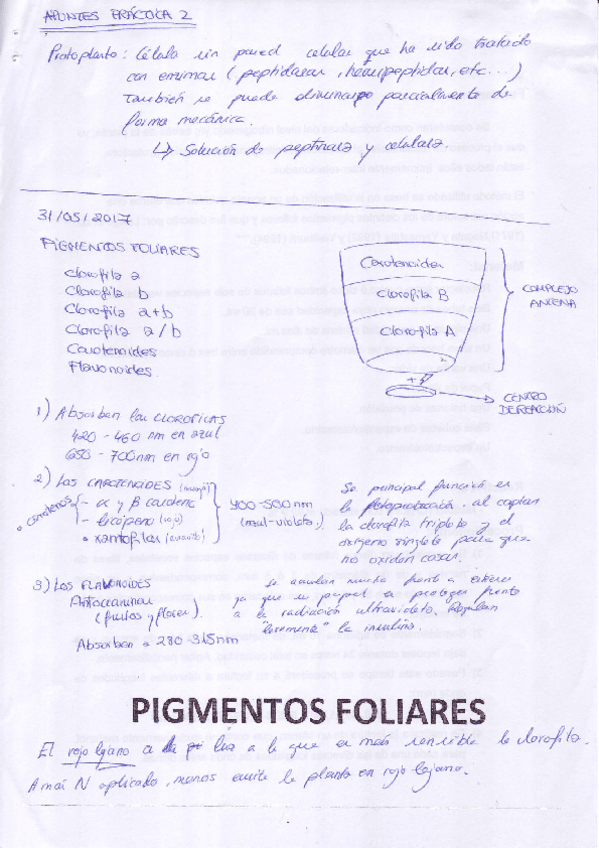 APUNTES PRÁCTICA 2
Protoplasto: Célula sin pared celular que ha sido tratada
con enzimas (peptidasas, hemipeptidas, etc...)
También se puede eliminar parcialmente de
forma mecánica.
↳ Solución de peptinasa y celulasa.
31/05/2017
PIGMENTOS FOLIARES
Clorofila a
Clorofila b
Clorofila a+b
Clorofila a/b
Carotenoides
Flavonoides
Carotenoides
Clorofila B
Clorofila A
COMPLEJO
ANTENA
CENTRO
DE REACCIÓN
1) Absorben las CLOROFILAS
420 - 460 nm en azul
650 - 700 nm en rojo
2) Los CAROTENOIDES (naranja)
carotenos - α y β caroteno
- licopeno (rojo)
• xantofilas (amarillo)
400-500 nm
(azul-violeta)
Su principal función es
la fotoprotección, al captar
la clorofila triplete y el
oxígeno singlete para que
no oxiden cosas.
3) Los FLAVONOIDES
Antocianinas
(frutos y flores)
Absorben a 280-315nm
se acumulan mucho frente a estrés
ya que su papel es proteger frente
a la radiación ultravioleta. Regulan
"levemente" la
PIGMENTOS FOLIARES
El rojo lejano a la luz a la que es más sensible la clorofila.
A más N aplicado, menos emite la planta en rojo lejano.